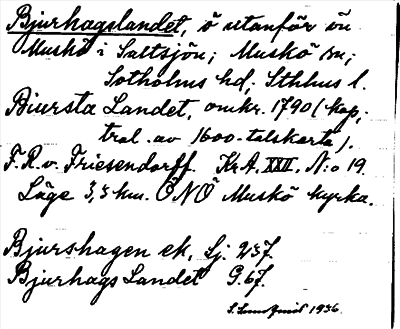 Bjurhagslandet, ö utanför ön
Muskö i Saltsjön; Muskö sn;
Sotholms hd; Sthlms l.
Biursta Landet, omkr. 1790 (kop,
tral. av 1600-talskarta).
F. R. v. Friesendorff. Kr. A. XXII, N:o 19.
Läge 3,5 km. ÖNÖ Muskö kyrka.
Bjurshagen ek, Lj. 237.
Bjurhags Landet G. 67.
1936.